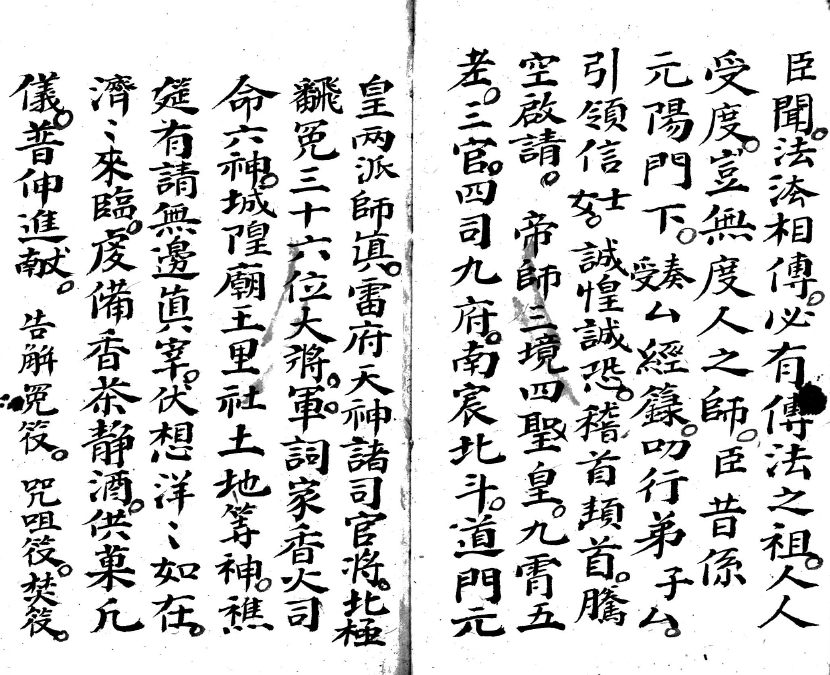 臣聞。法法相傳。必有傳法之祖。人人
受度。豈無度人之師。臣昔係
元陽門下。奏受厶經籙。叨行弟子厶。
引領信士女。誠惶誠恐。稽首頓首。騰
空啟請。帝師三境四聖皇。九霄五
老。三官。四司九府。南宸北斗。道門元
皇兩派師真。雷府天神諸司官將。北極
翻冤三十六位大將。軍。詞家香火司
命六神。城隍廟王里社土地等神。醮
筵有請無邊真宰。伏想洋〻如在。
濟〻來臨。虔備香茶静酒。供菓凡
儀。普伸進献。告解冤筊。咒咀筊。焚筊。